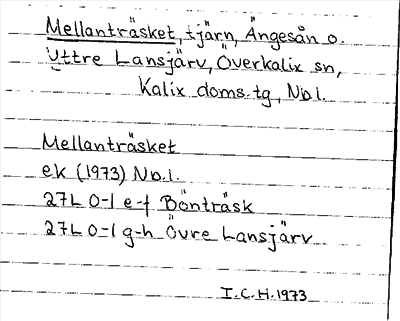 Mellanträsket, tjärn, Ängesån o.
Yttre Lansjärv, Överkalix sn,
Kalix doms. tg, Nb.l.
Mellanträsket
ek (1973) Nb.l.
27L 0-1 e-f Bönträsk
27L 0-1 g-h Övre Lansjärv
I.C.H. 1973